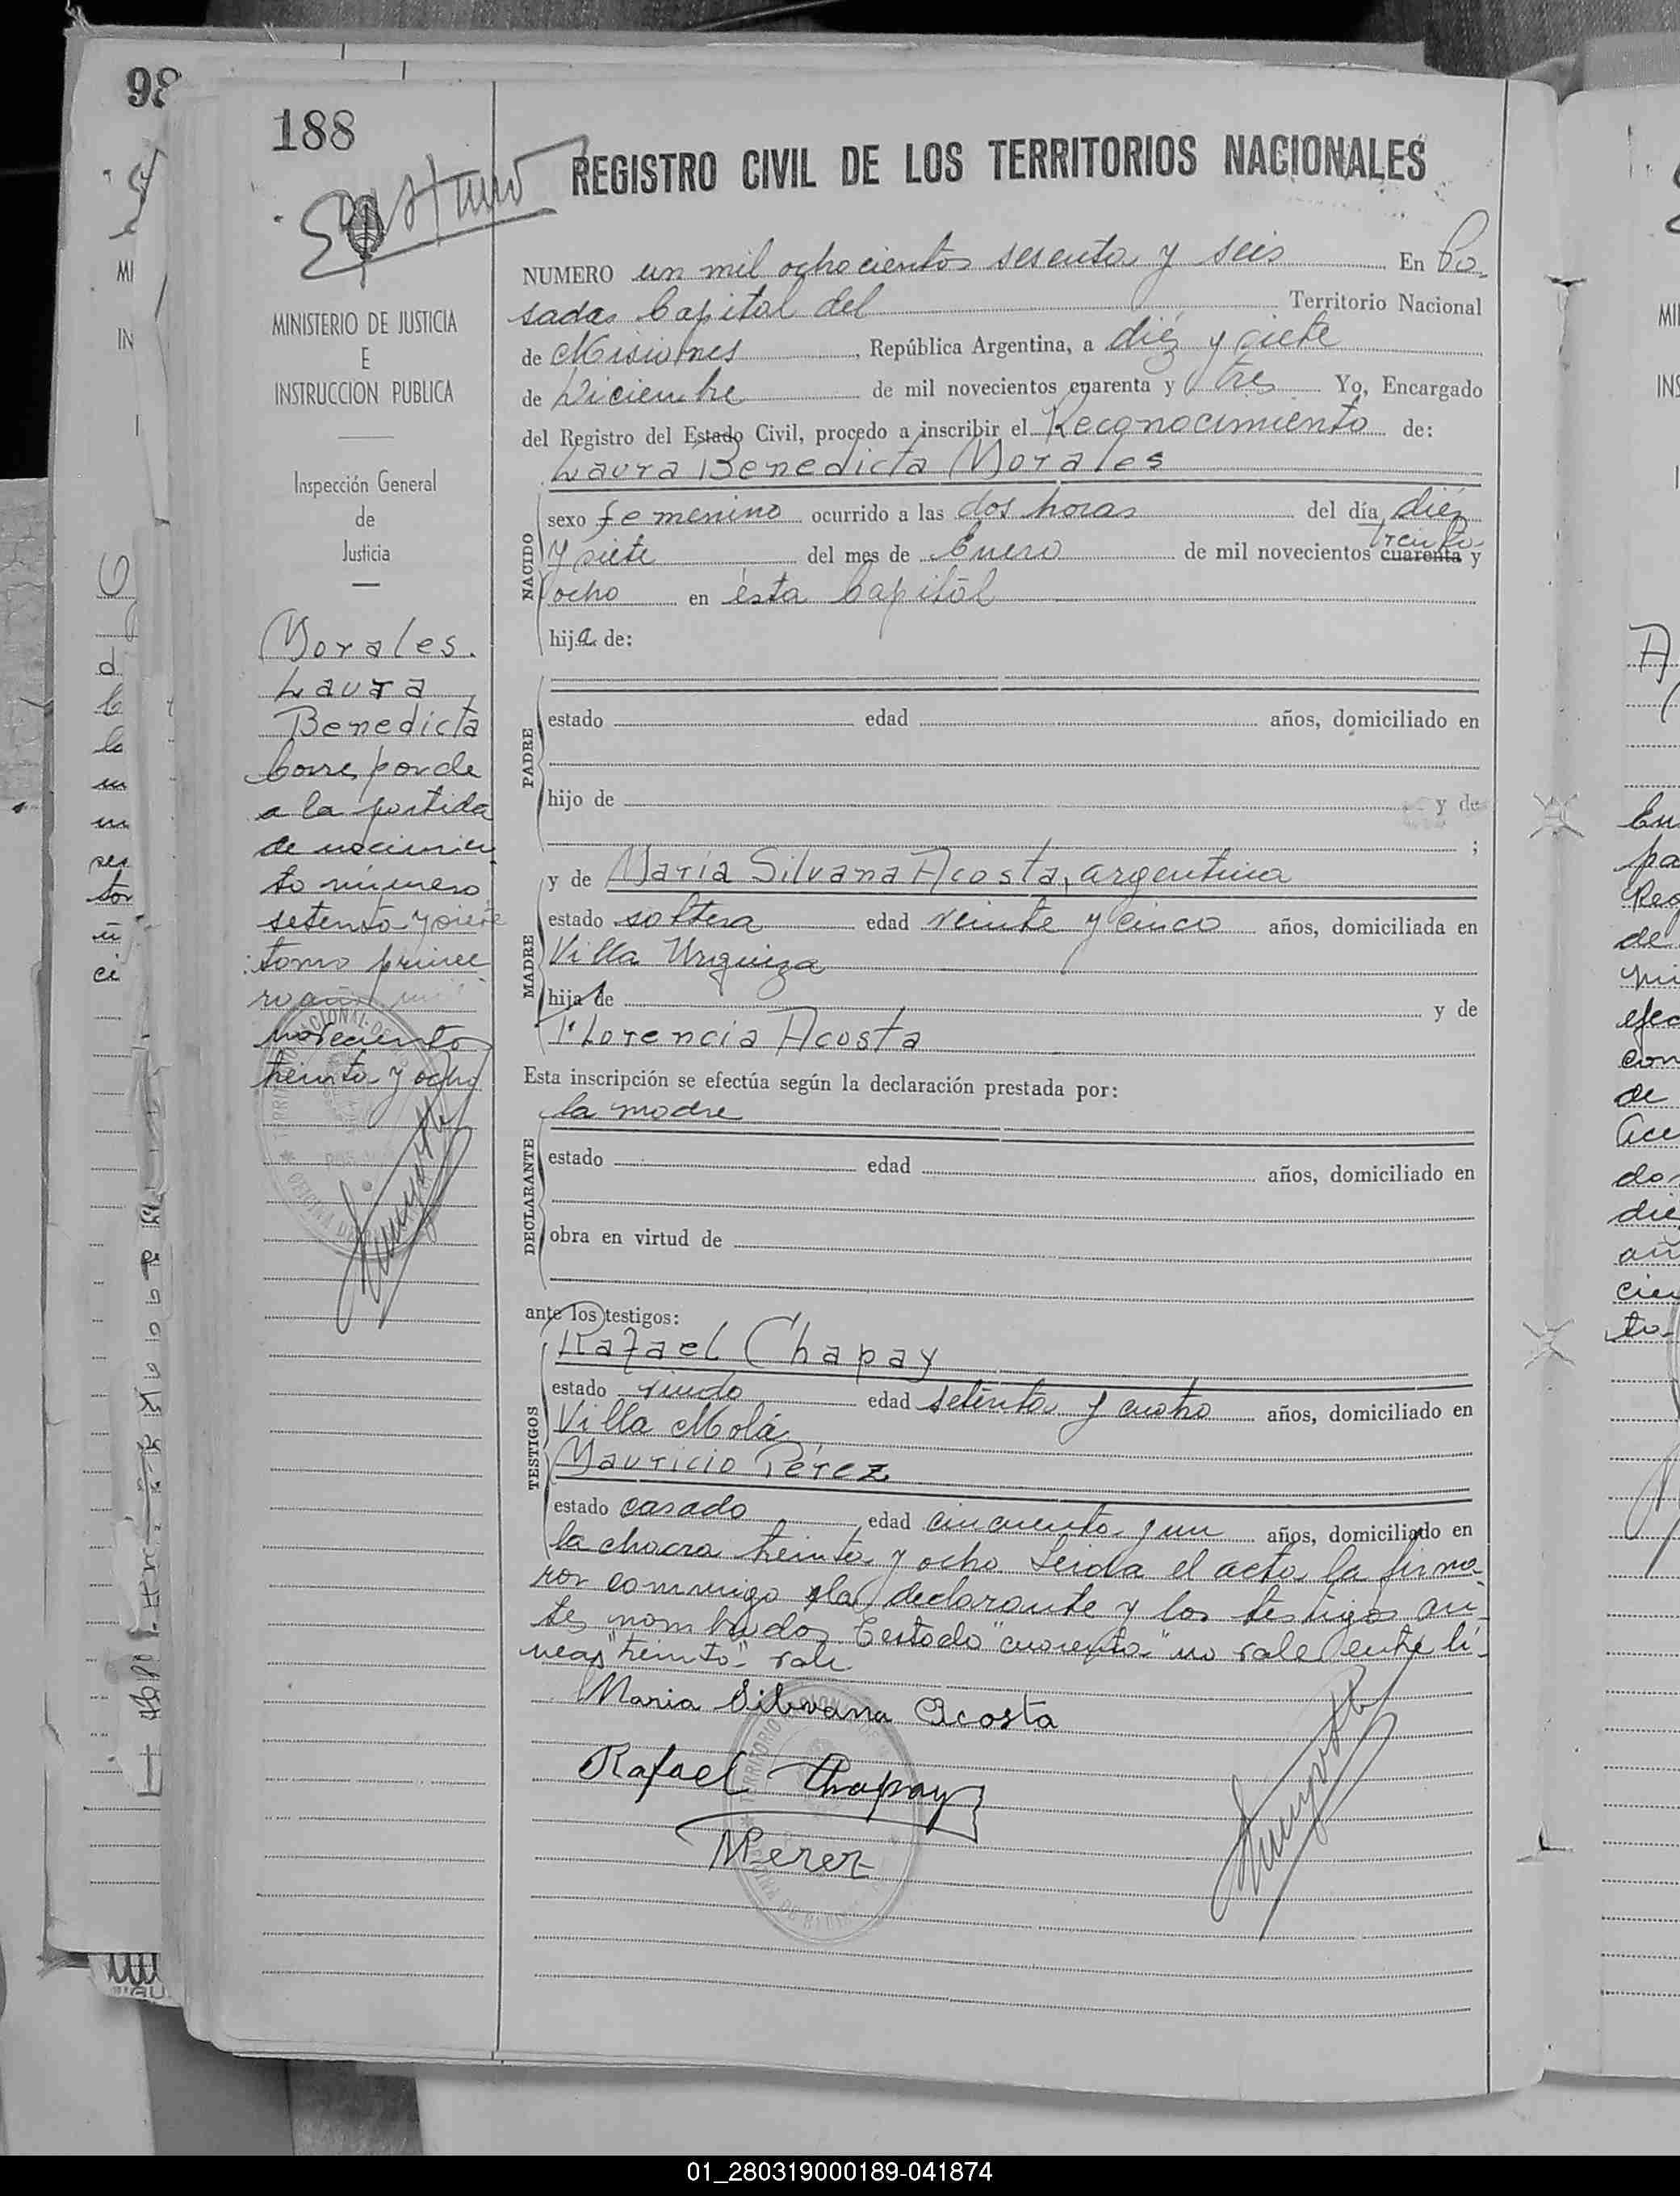 98
188
REGISTRO CIVIL DE LOS TERRITORIOS NACIONALES
MINISTERIO DE JUSTICIA
E
INSTRUCCION PUBLICA
Inspección General
de
Justicia
Morales.
Laura
Benedicta
Corresponde
a la partida
de nacimien
to número
setenta y siete
tomo prime
ro año mil
novecientos
treinta y ocho
NUMERO un mil ochocientos sesenta y seis En Po-
sadas Capital del Territorio Nacional
de Misiones, República Argentina, a diéz y siete
de Diciembre de mil novecientos cuarenta y tres Yo, Encargado
del Registro del Estado Civil, procedo a inscribir el Reconocimiento de:
Laura Benedicta Morales
NACIDO
sexo femenino ocurrido a las dos horas del día diéz
treinta
y siete del mes de Enero de mil novecientos cuarenta y
ocho en ésta Capitál
hija de:
PADRE
estado edad años, domiciliado en
hijo de y de
;
MADRE
y de María Silvana Acosta, argentina
estado soltera edad veinte y cinco años, domiciliada en
Villa Urquiza
hija de y de
Florencia Acosta
Esta inscripción se efectúa según la declaración prestada por:
la madre
DECLARANTE
estado edad años, domiciliado en
obra en virtud de
ante los testigos:
TESTIGOS
Rafael Chapay
estado viudo edad setenta y cuatro años, domiciliado en
Villa Molá
Mauricio Pérez
estado casado edad cincuenta y un años, domiciliado en
la chacra treinta y ocho. Leida el acta la firma-
ron conmigo la declarante y los testigos an-
tes nombrados. Testado "cuarenta" no vale entre lí-
neas "treinta" vale
Maria Silvana Acosta
Rafael Chapay
MPerez
01_280319000189-041874